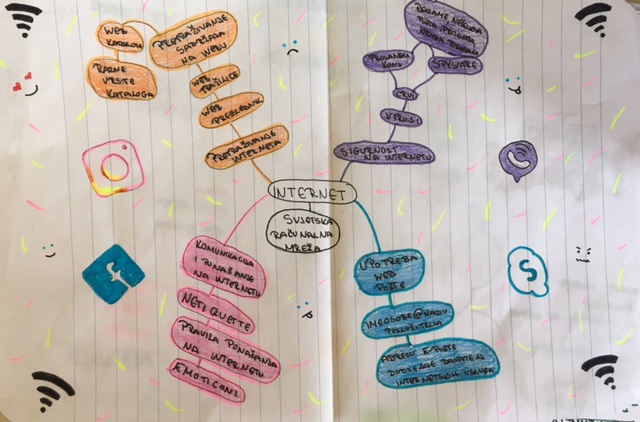 WEB
KATALOZI
RAZNE
VRSTE
KATALOGA
PRETRAŽIVANJE
SADRŽAJA
NA WEBU
WEB
TRAŽILICE
WEB
PREGLEDNIK
PRETRAŽIVANJE
INTERNETA
TROJANSKI
KONJ
SPYWARE
CRVI
VIRUSI
SIGURNOST
NA INTERNETU
INTERNET
SVJETSKA
RAČUNALNA
MREŽA
KOMUNIKACIJA
I PONAŠANJE
NA INTERNETU
NETIQUETTE
PRAVILA PONAŠANJA
NA INTERNETU
EMOTICONI
UPOTREBA
WEB
POŠTE
IMEOSOBE@NAZIV
POSLUŽITELJA
ADRESU E-POŠTE
DODJELJUJE DAVATELJ
INTERNETSKIH USLUGA